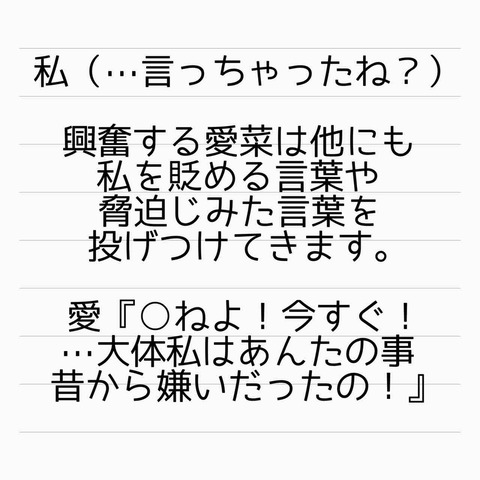 私（…言っちゃったね？）
興奮する愛菜は他にも
私を貶める言葉や
脅迫じみた言葉を
投げつけてきます。
愛『○ねよ！今すぐ！
…大体私はあんたの事
昔から嫌いだったの！』